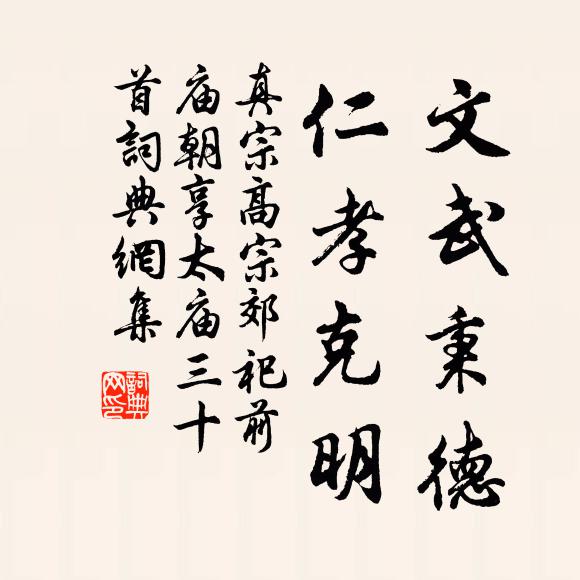 文武秉德
仁孝克明
真宗高宗郊祀前
庙朝享太庙三十
首詞典網集
詞典
网印